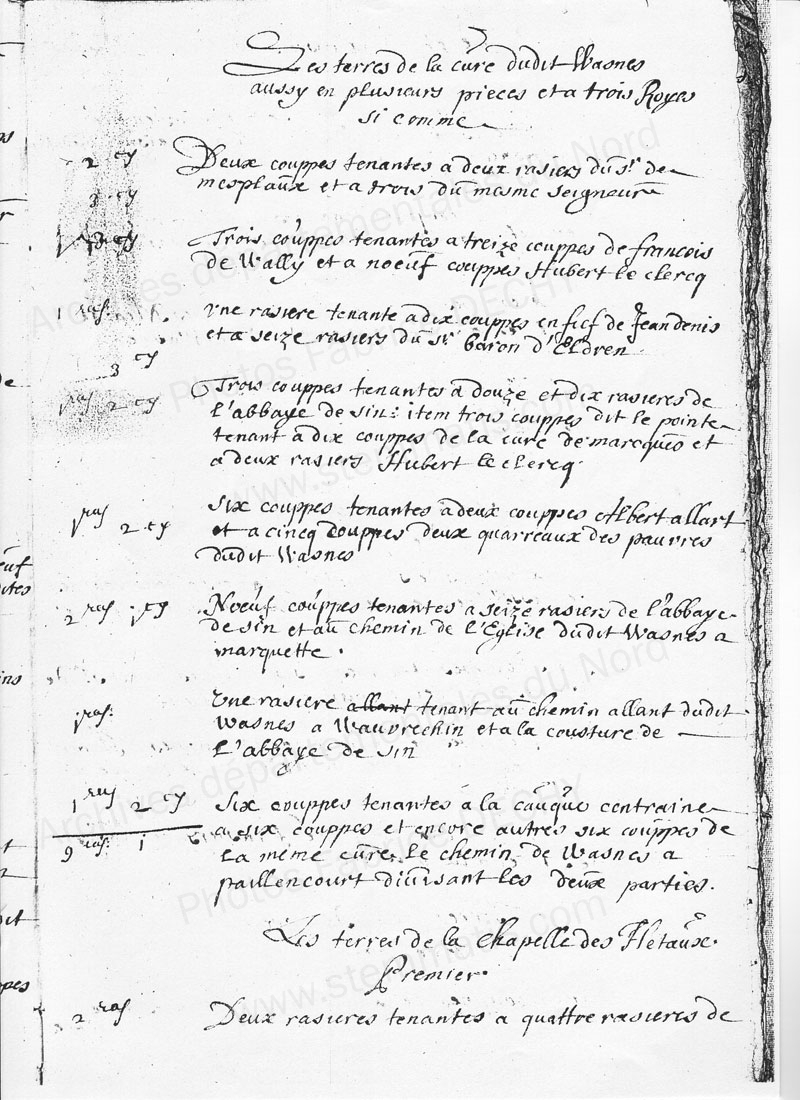 Les terres de la cure dudit Wasnes
aussy en plusieurs pieces et a trois Royes
si comme
2 cy
Deux couppes tenantes a deux rasiers du sr de
mesplaux et a trois du mesme seigneur
3 cy
Trois couppes tenantes a treize couppes de francois
de Wally et a noeuf couppes Hubert le clercq
1 ras:
une rasiere tenante a dix couppes en fief de Jean denis
et a seize rasiers du sr baron d'Eldren
3 cy
ras 2 cy
Trois couppes tenantes a douze et dix rasieres de
l'abbaye de sin: item trois couppes dit le pointe
tenant a dix couppes de la cure de marcques et
a deux rasiers Hubert le clercq
1 ras 2 cy
Six couppes tenantes a deux couppes Albert allart
et a cincq couppes deux quarreaux des pauvres
dudit Wasnes
2 ras 1 cy
Noeuf couppes tenantes a seize rasiers de l'abbaye
de sin et au chemin de l'Eglise dudit Wasnes a
marquette.
1 ras:
Une rasiere allant tenant au chemin allant dudit
Wasnes a Wavrechin et a la cousture de
l'abbaye de sin
1 ras 2 cy
Six couppes tenantes a la cauque contraine
9 ras: 1
a six couppes et encore autres six couppes de
la même cure, le chemin de Wasnes a
paillencourt divisant les deux parties.
Les terres de la Chapelle des Fletaux.
Premier.
2 ras
Deux rasieres tenantes a quattre rasieres de
Archives départementales du Nord
Photos Fabrice DECHY